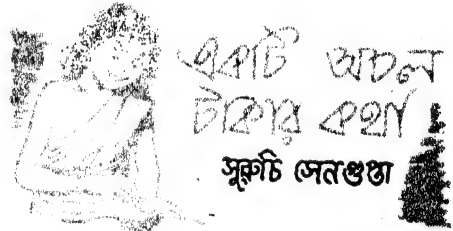 একটি অচল
টাকার কথা
সুরুচি সেনগুপ্তা